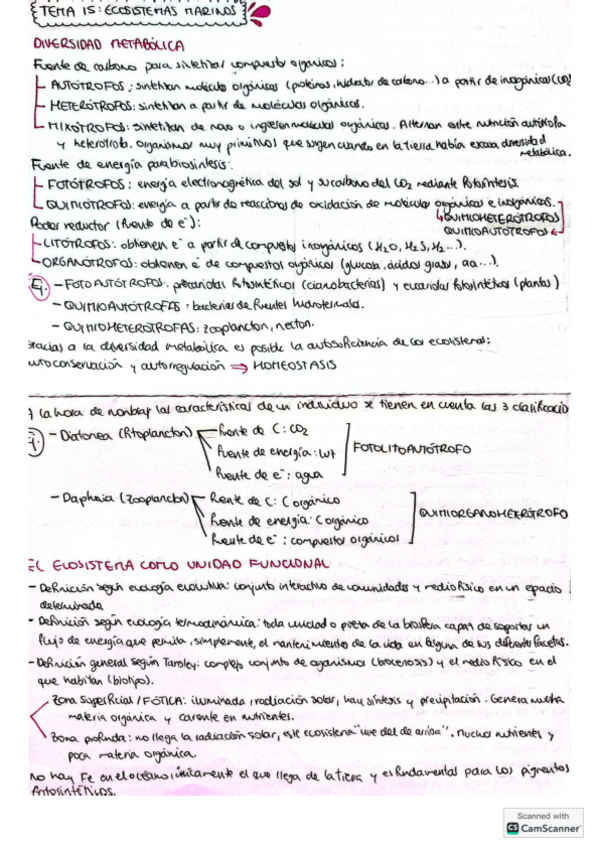 TEMA 15: ECOSISTEMAS MARINOS
DIVERSIDAD METABÓLICA
Fuente de carbono para sintetizar compuesto orgánicos:
AUTÓTROFOS: sintetizan molécula orgánicas (proteínas, hidratos de carbono...) a partir de inorgánicos (CO2
HETERÓTROFOS: sintetizan a partir de moléculas orgánicas.
MIXÓTROFOS: sintetizan de novo o ingieren moléculas orgánicas. Alternan entre nutrición autótrofa
y heterótrofa. Organismos muy primitivos que surgen cuando en la tierra había escasa diversidad
metabólica.
Fuente de energía para biosíntesis:
FOTÓTROFOS: energía electromagnética del sol y su carbono del CO2 mediante fotosíntesis.
QUIMIÓTROFOS: energía a partir de reacciones de oxidación de moléculas orgánicas e inorgánicas.
QUIMIOHETERÓTROFOS
QUIMIOAUTÓTROFOS
Poder reductor (fuente de e-):
LITÓTROFOS: obtienen e- a partir de compuestos inorgánicos (H2O, H2S, H2...).
ORGANÓTROFOS: obtienen e- de compuestos orgánicos (glucosa, ácidos grasos, aa...).
Ej. - FOTOAUTÓTROFOS: procariotas fotosintéticos (cianobacterias) y eucariotas fotosintéticos (plantas)
- QUIMIOAUTÓTROFAS: bacterias de fuentes hidrotermales.
- QUIMIOHETERÓTROFAS: zooplancton, necton.
Gracias a la diversidad metabólica es posible la autosuficiencia de los ecosistemas:
autoconservación y autorregulación ⇒ HOMEOSTASIS
A la hora de nombrar las características de un individuo se tienen en cuenta las 3 clasificacio
Ej. - Diatomea (Fitoplancton) Fuente de C: CO2
Fuente de energía: luz
Fuente de e-: agua
FOTOLITOAUTÓTROFO
- Daphnia (zooplancton) Fuente de C: C orgánico
Fuente de energía: C orgánico
Fuente de e-: compuestos orgánicos
QUIMIORGANOHETERÓTROFO
EL ECOSISTEMA COMO UNIDAD FUNCIONAL
- Definición según ecología evolutiva: conjunto interactivo de comunidades y medio físico en un espacio
determinado.
- Definición según ecología termodinámica: toda unidad o parte de la biosfera capaz de soportar un
flujo de energía que permita, simplemente, el mantenimiento de la vida en alguna de sus diferentes facetas.
- Definición general según Tansley: complejo conjunto de organismos (biocenosis) y el medio físico en el
que habitan (biotipo).
Zona superficial / FÓTICA: iluminada, radiación solar, hay síntesis y precipitación. Genera mucha
materia orgánica y carente en nutrientes.
Zona profunda: no llega la radiación solar, este ecosistema "vive del de arriba". Muchos nutrientes y
poca materia orgánica.
No hay Fe en el océano, únicamente el que llega de la tierra y es fundamental para los pigmentos
fotosintéticos.
Scanned with
CS CamScanner